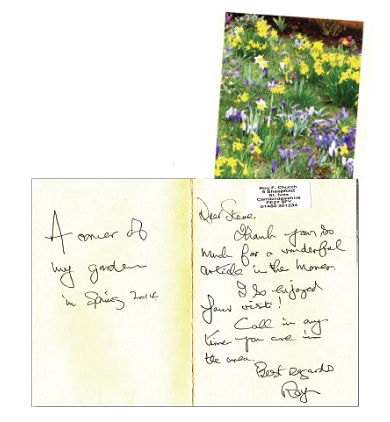 A corner of
my garden
in Spring 2014
Roy F. Church
St. Ives
Cambridgeshire
Dear Steve,
Thank you so
much for a wonderful
article in the Moner.
I so enjoyed
your visit!
Call in any
time you are in
the area.
Best regards
Roy